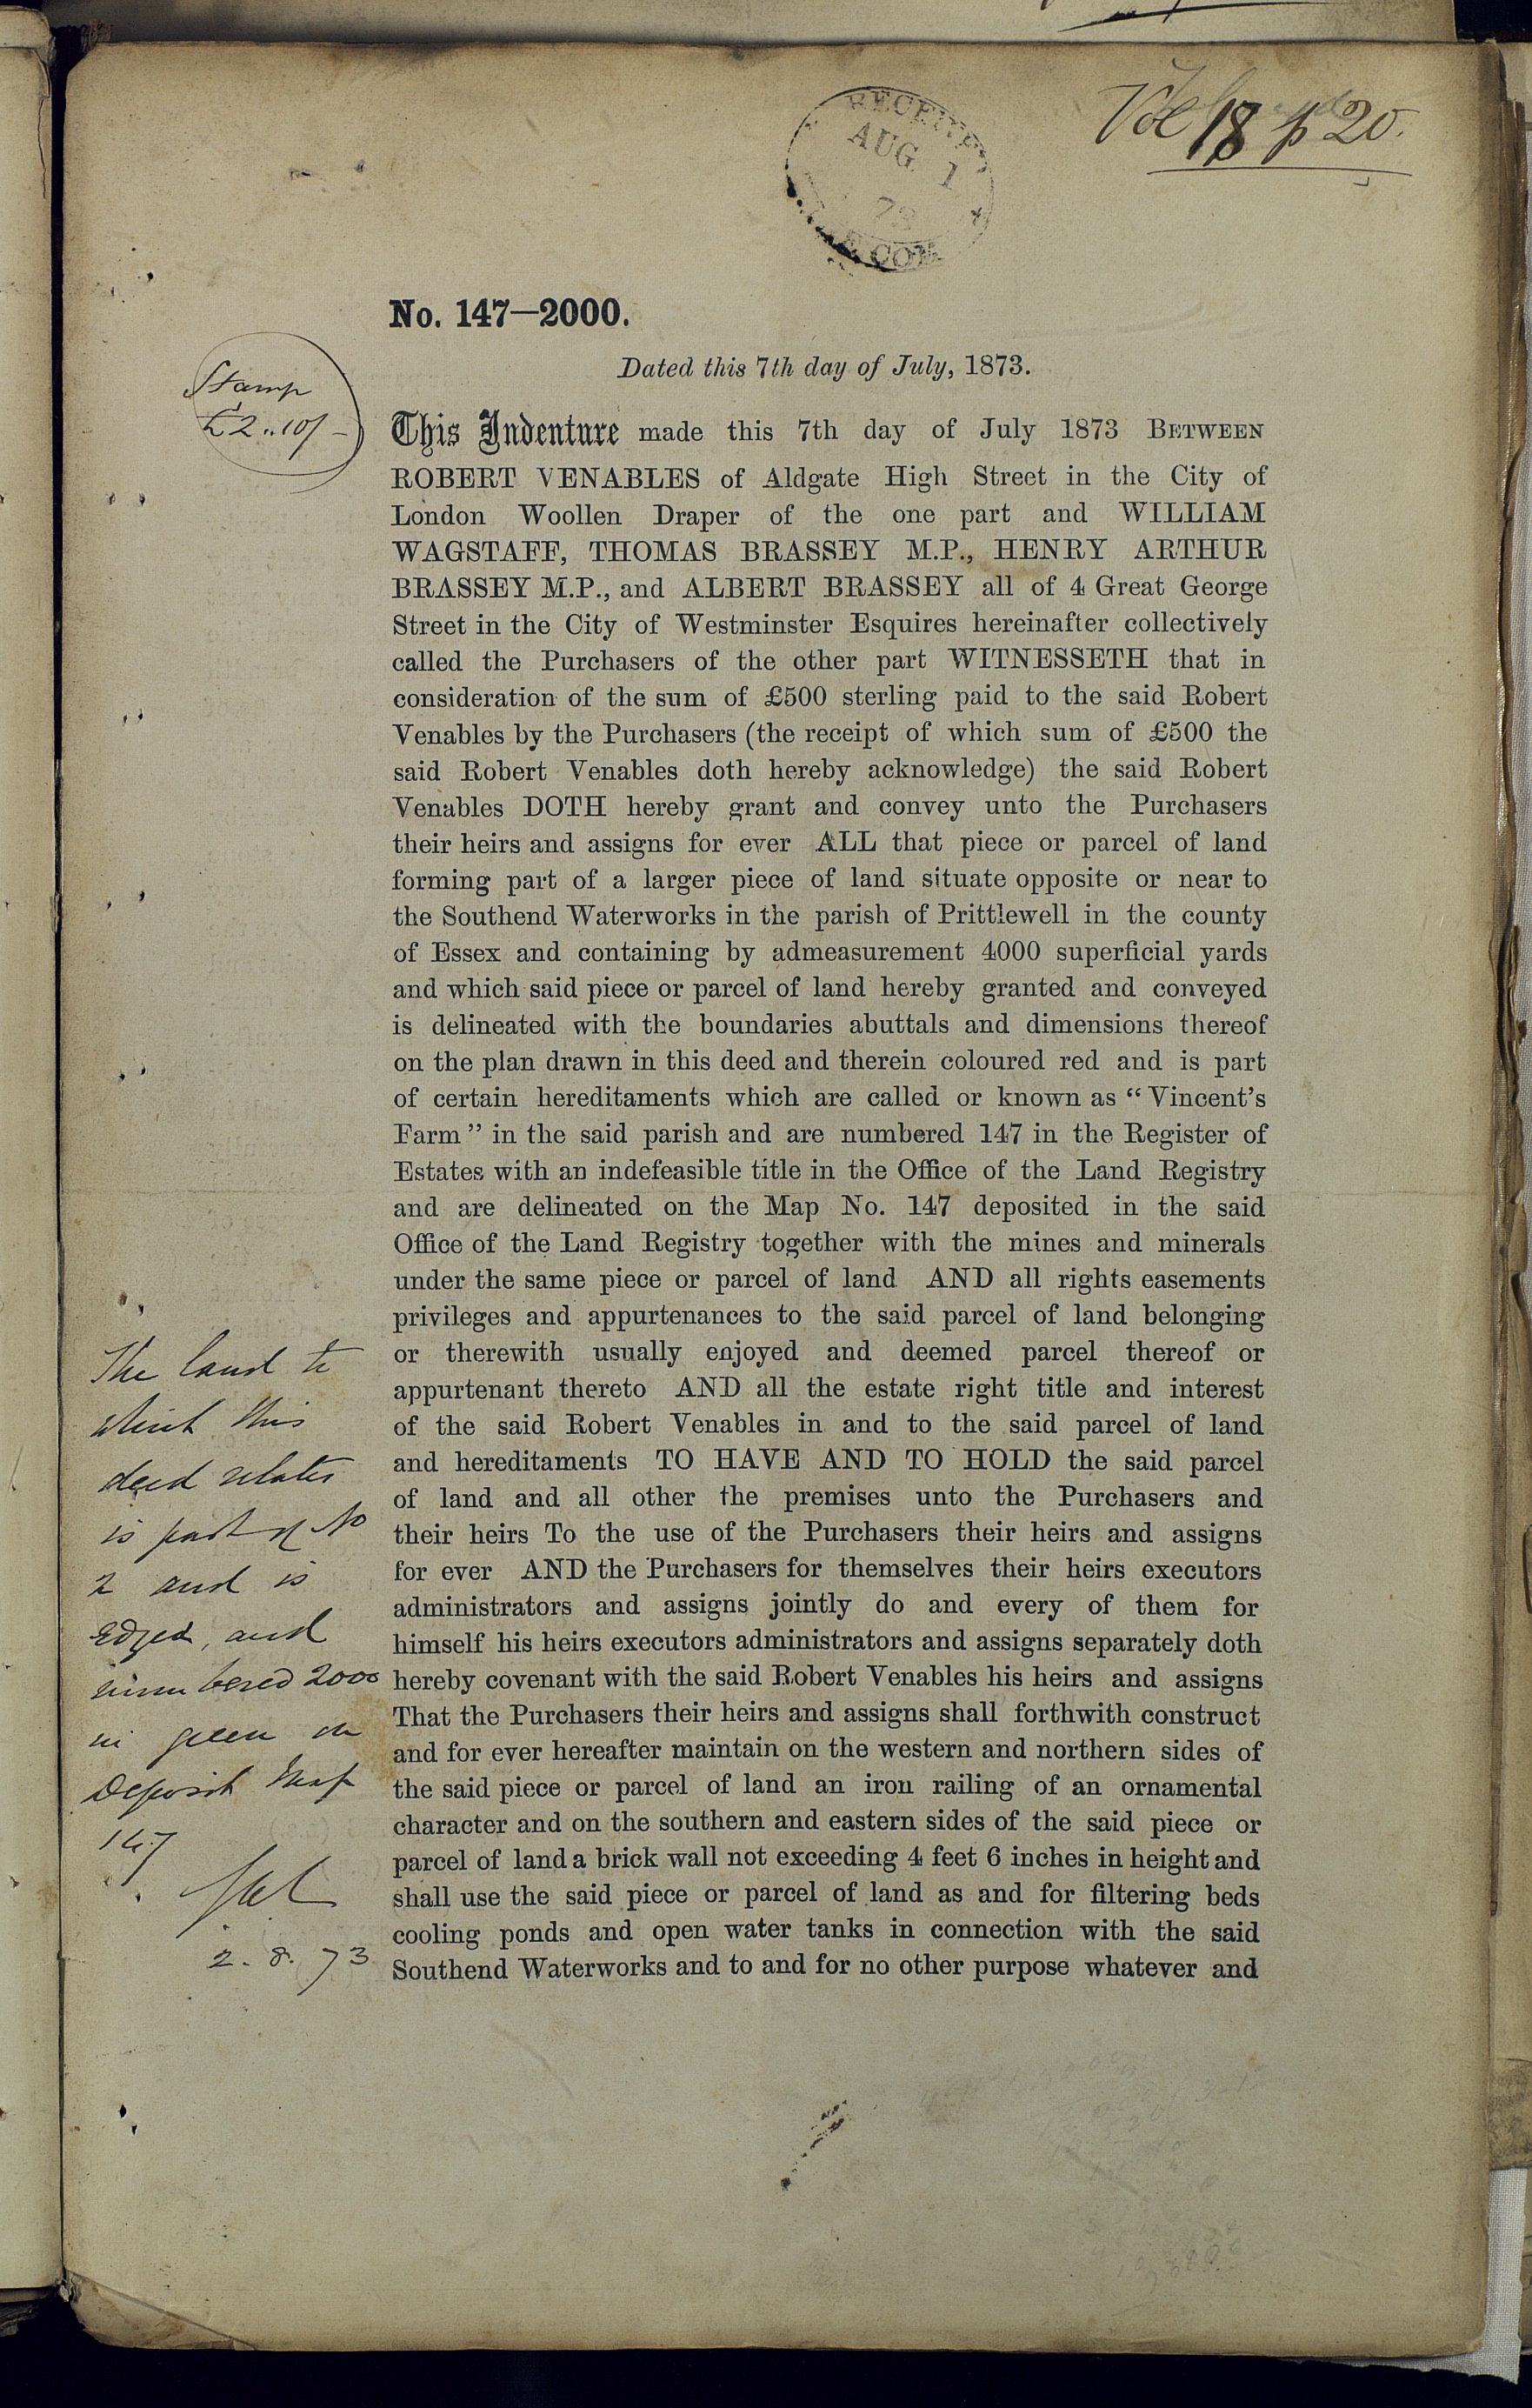 Vol 18 p 20.
RECEIVED
AUG 1
73
No. 147—2000.
Dated this 7th day of July, 1873.
Stamp
£2..10/-
This Indenture made this 7th day of July 1873 BETWEEN
ROBERT VENABLES of Aldgate High Street in the City of
London Woollen Draper of the one part and WILLIAM
WAGSTAFF, THOMAS BRASSEY M.P., HENRY ARTHUR
BRASSEY M.P., and ALBERT BRASSEY all of 4 Great George
Street in the City of Westminster Esquires hereinafter collectively
called the Purchasers of the other part WITNESSETH that in
consideration of the sum of £500 sterling paid to the said Robert
Venables by the Purchasers (the receipt of which sum of £500 the
said Robert Venables doth hereby acknowledge) the said Robert
Venables DOTH hereby grant and convey unto the Purchasers
their heirs and assigns for ever ALL that piece or parcel of land
forming part of a larger piece of land situate opposite or near to
the Southend Waterworks in the parish of Prittlewell in the county
of Essex and containing by admeasurement 4000 superficial yards
and which said piece or parcel of land hereby granted and conveyed
is delineated with the boundaries abuttals and dimensions thereof
on the plan drawn in this deed and therein coloured red and is part
of certain hereditaments which are called or known as “ Vincent’s
Farm ” in the said parish and are numbered 147 in the Register of
Estates with an indefeasible title in the Office of the Land Registry
and are delineated on the Map No. 147 deposited in the said
Office of the Land Registry together with the mines and minerals
under the same piece or parcel of land AND all rights easements
privileges and appurtenances to the said parcel of land belonging
or therewith usually enjoyed and deemed parcel thereof or
appurtenant thereto AND all the estate right title and interest
of the said Robert Venables in and to the said parcel of land
and hereditaments TO HAVE AND TO HOLD the said parcel
of land and all other the premises unto the Purchasers and
their heirs To the use of the Purchasers their heirs and assigns
for ever AND the Purchasers for themselves their heirs executors
administrators and assigns jointly do and every of them for
himself his heirs executors administrators and assigns separately doth
hereby covenant with the said Robert Venables his heirs and assigns
That the Purchasers their heirs and assigns shall forthwith construct
and for ever hereafter maintain on the western and northern sides of
the said piece or parcel of land an iron railing of an ornamental
character and on the southern and eastern sides of the said piece or
parcel of land a brick wall not exceeding 4 feet 6 inches in height and
shall use the said piece or parcel of land as and for filtering beds
cooling ponds and open water tanks in connection with the said
Southend Waterworks and to and for no other purpose whatever and
The land to
which this
deed relates
is part of No
2 and is
edged, and
numbered 2000
in green on
Deposit Map
147
2. 8. 73